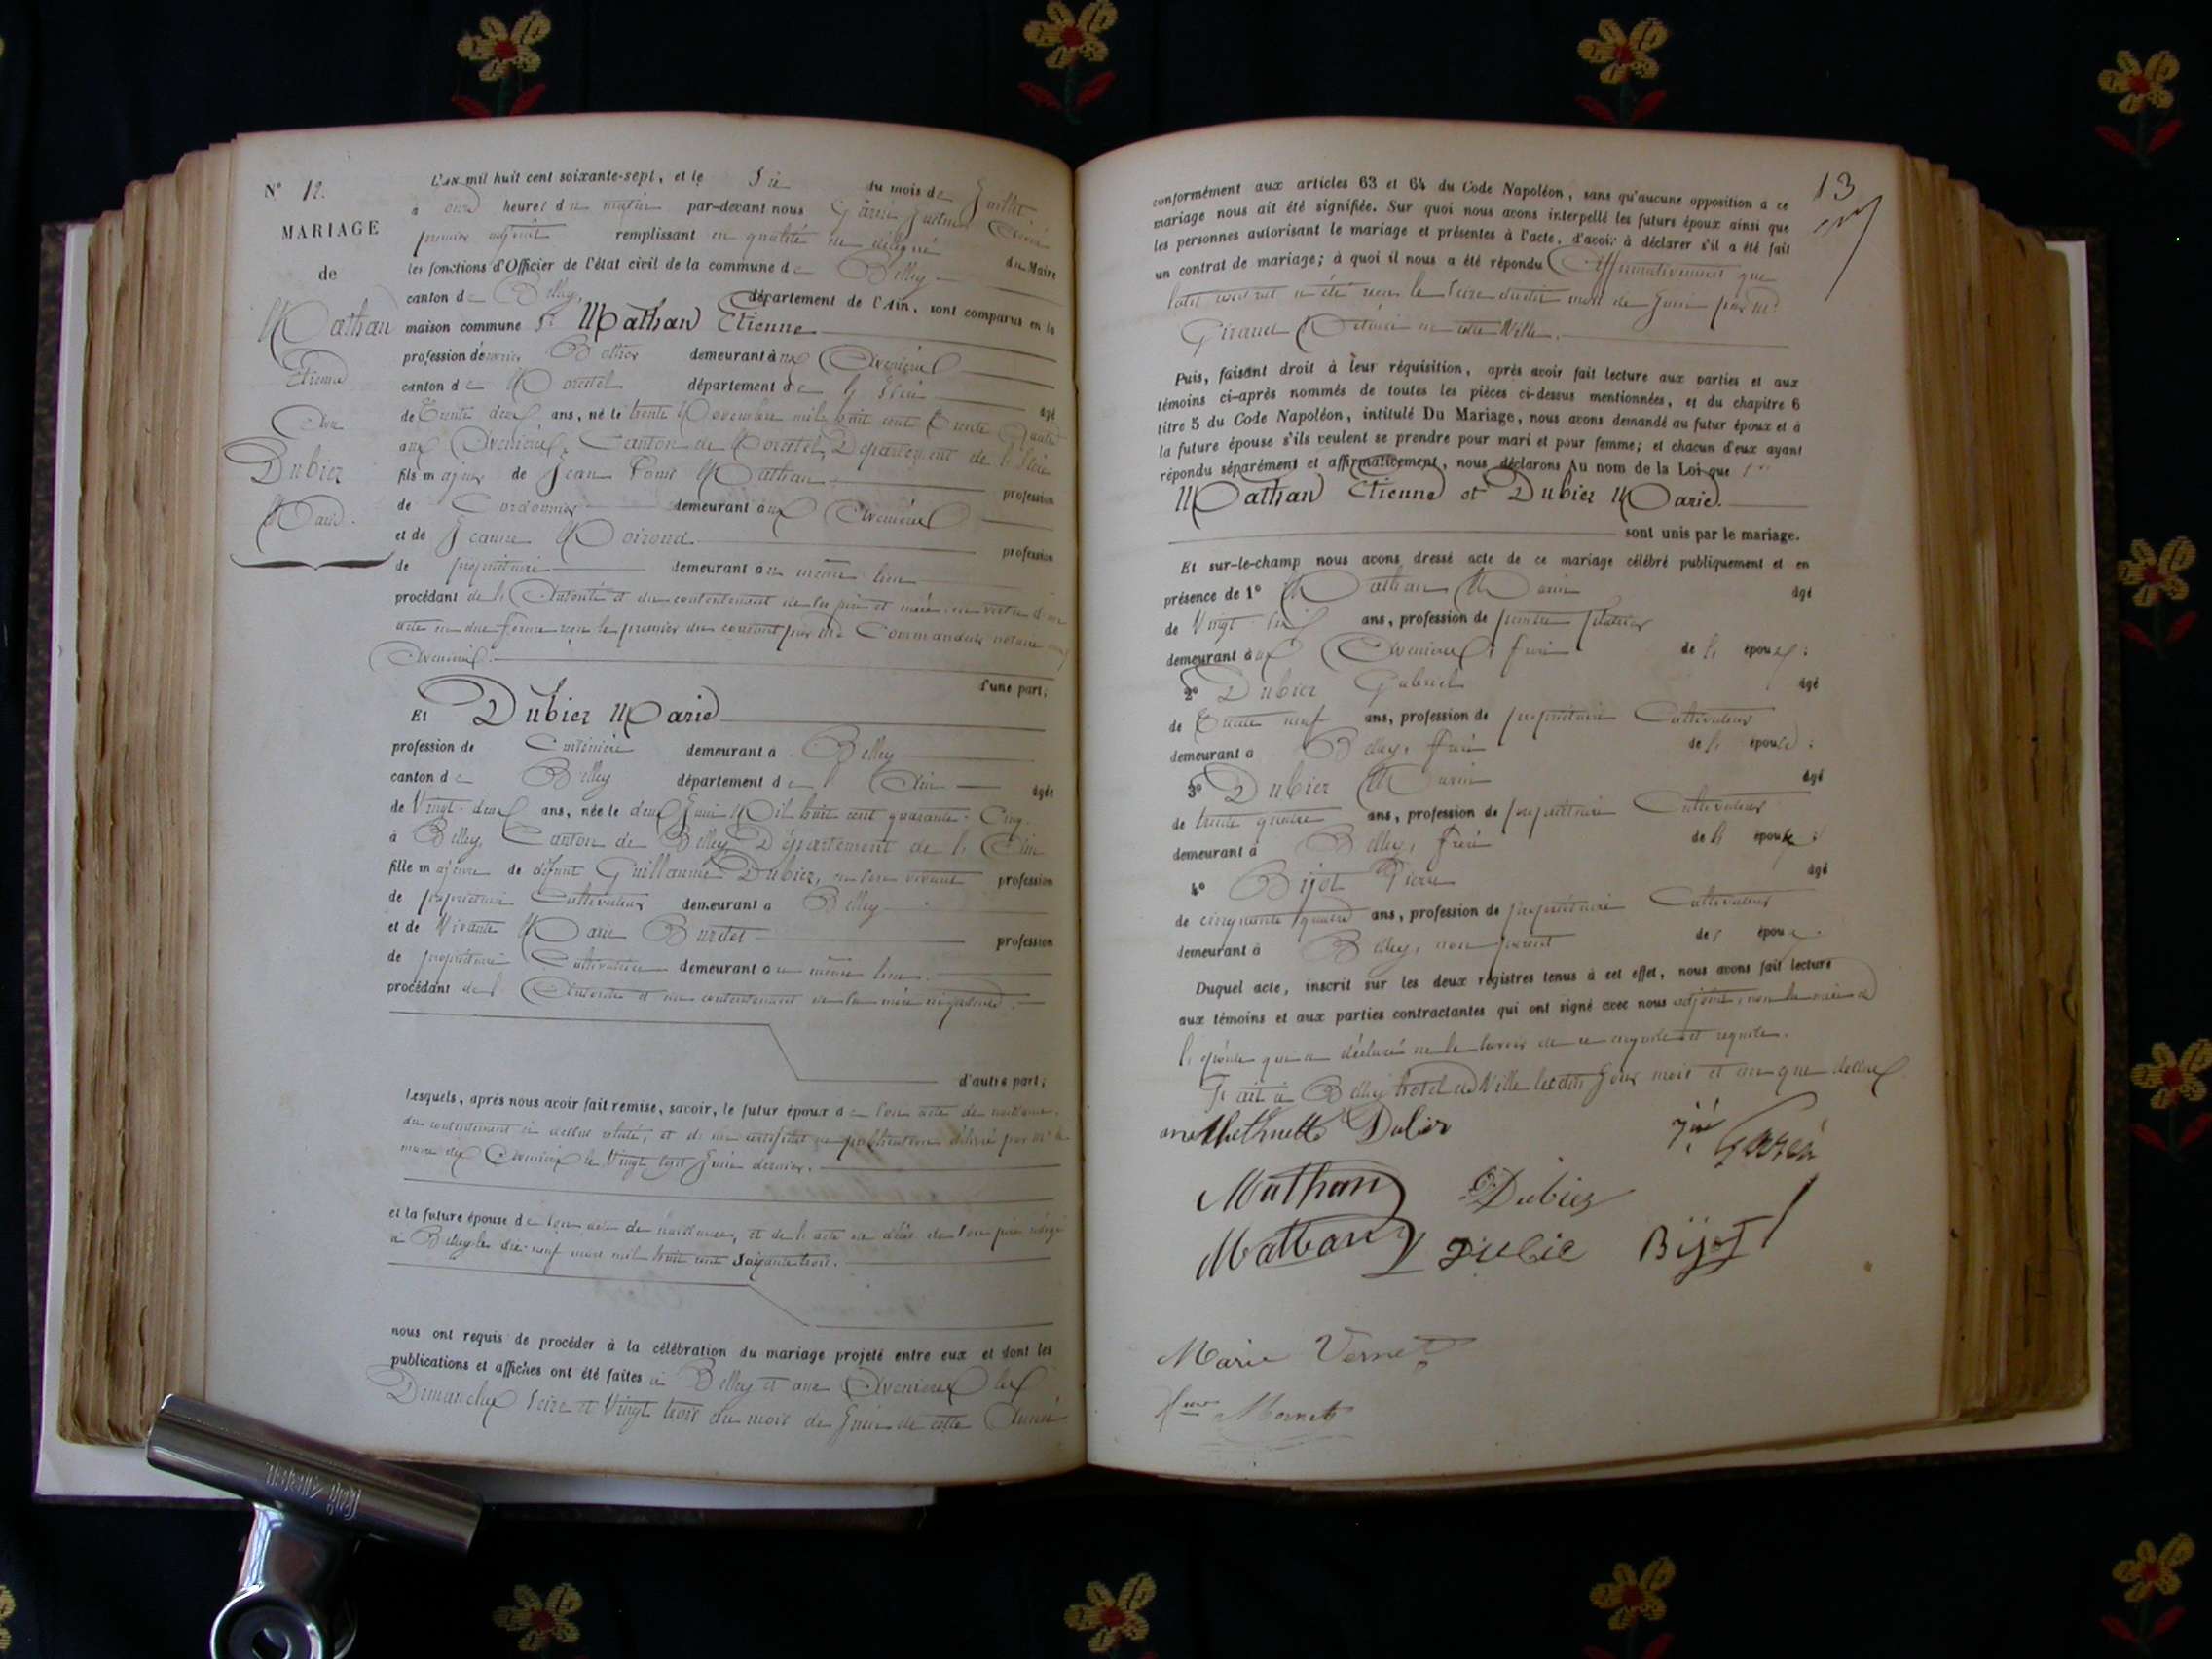 N° 12.
MARIAGE
de
Mathan
Etienne
Avec
Dubiez
Marie.
L'AN mil huit cent soixante-sept, et le Six du mois de Juillet
à onze heures du matin par-devant nous
premier adjoint remplissant en qualité de délégué du Maire
les fonctions d'Officier de l'état civil de la commune de Belley
canton de Belley, département de l'Ain, sont comparus en la
maison commune Sr Mathan Etienne
profession demeurant aux Avenières
canton de Morestel département de l'Isère âgé
de Trente deux ans, né le trente Novembre mil huit cent Trente Quatre
aux Avenières, Canton de Morestel, Département de l'Isère
fils majeur de Jean Mathan profession
de Cordonnier demeurant aux Avenières
et de Jeanne Moirond profession
de propriétaire demeurant au même lieu
procédant de l'Autorité et du consentement de ses père et mère, en vertu d'un
acte en due forme reçu le premier du courant par Me Commandeur notaire aux
Avenières.
d'une part;
Et Dubiez Marie
profession de demeurant à Belley
canton de Belley département de l'Ain âgée
de Vingt-deux ans, née le deux Juin Mil huit cent quarante-Cinq.
à Belley, Canton de Belley, Département de l'Ain
fille majeure de défunt Guillaume Dubiez, en son vivant profession
de propriétaire Cultivateur demeurant à Belley
et de Vivante Marie Burdet profession
de propriétaire Cultivatrice demeurant au même lieu.
procédant de l'Autorité et du consentement de sa mère
d'autre part;
Lesquels, après nous avoir fait remise, savoir, le futur époux de son acte de naissance,
du consentement ci dessus relaté, et du certificat de publication délivré par Mr le
maire des Avenières le Vingt Juin dernier.
et la future épouse de son acte de naissance, et de l'acte de décès de son père rédigé
à Belley le dix-neuf mars mil huit cent Soixante trois.
nous ont requis de procéder à la célébration du mariage projeté entre eux et dont les
publications et affiches ont été faites à Belley et aux Avenières les
Dimanches Seize et Vingt trois du mois de Juin de cette Année
13
conformément aux articles 63 et 64 du Code Napoléon, sans qu'aucune opposition à ce
mariage nous ait été signifiée. Sur quoi nous avons interpellé les futurs époux ainsi que
les personnes autorisant le mariage et présentes à l'acte, d'avoir à déclarer s'il a été fait
un contrat de mariage; à quoi il nous a été répondu Affirmativement que
ledit contrat a été reçu le Seize dudit mois de Juin par Me
Giraud Notaire en cette Ville.
Puis, faisant droit à leur réquisition, après avoir fait lecture aux parties et aux
témoins ci-après nommés de toutes les pièces ci-dessus mentionnées, et du chapitre 6
titre 5 du Code Napoléon, intitulé Du Mariage, nous avons demandé au futur époux et à
la future épouse s'ils veulent se prendre pour mari et pour femme; et chacun d'eux ayant
répondu séparément et affirmativement, nous déclarons Au nom de la Loi que Srs
Mathan Etienne et Dubiez Marie.
sont unis par le mariage.
Et sur-le-champ nous avons dressé acte de ce mariage célébré publiquement et en
présence de 1° Mathan Marin âgé
de Vingt ans, profession de peintre plâtrier
demeurant aux Avenières, frère de l'époux;
2° Dubiez Gabriel âgé
de Trente neuf ans, profession de propriétaire Cultivateur
demeurant à Belley, frère de l'épouse;
3° Dubiez Marin âgé
de trente quatre ans, profession de propriétaire Cultivateur
demeurant à Belley, frère de l'épouse;
4° Bijot Pierre âgé
de cinquante quatre ans, profession de propriétaire Cultivateur
demeurant à Belley, non parent des époux.
Duquel acte, inscrit sur les deux registres tenus à cet effet, nous avons fait lecture
aux témoins et aux parties contractantes qui ont signé avec nous adjoint, non la mère de
l'épouse qui a déclaré ne le savoir de ce enquise et requise.
Fait à Belley hotel de Ville lesdits Jour mois et an que dessus
Dubier
Mathan Dubiez
Mathan Dubie Bijot
Marie Vernet
Mornet